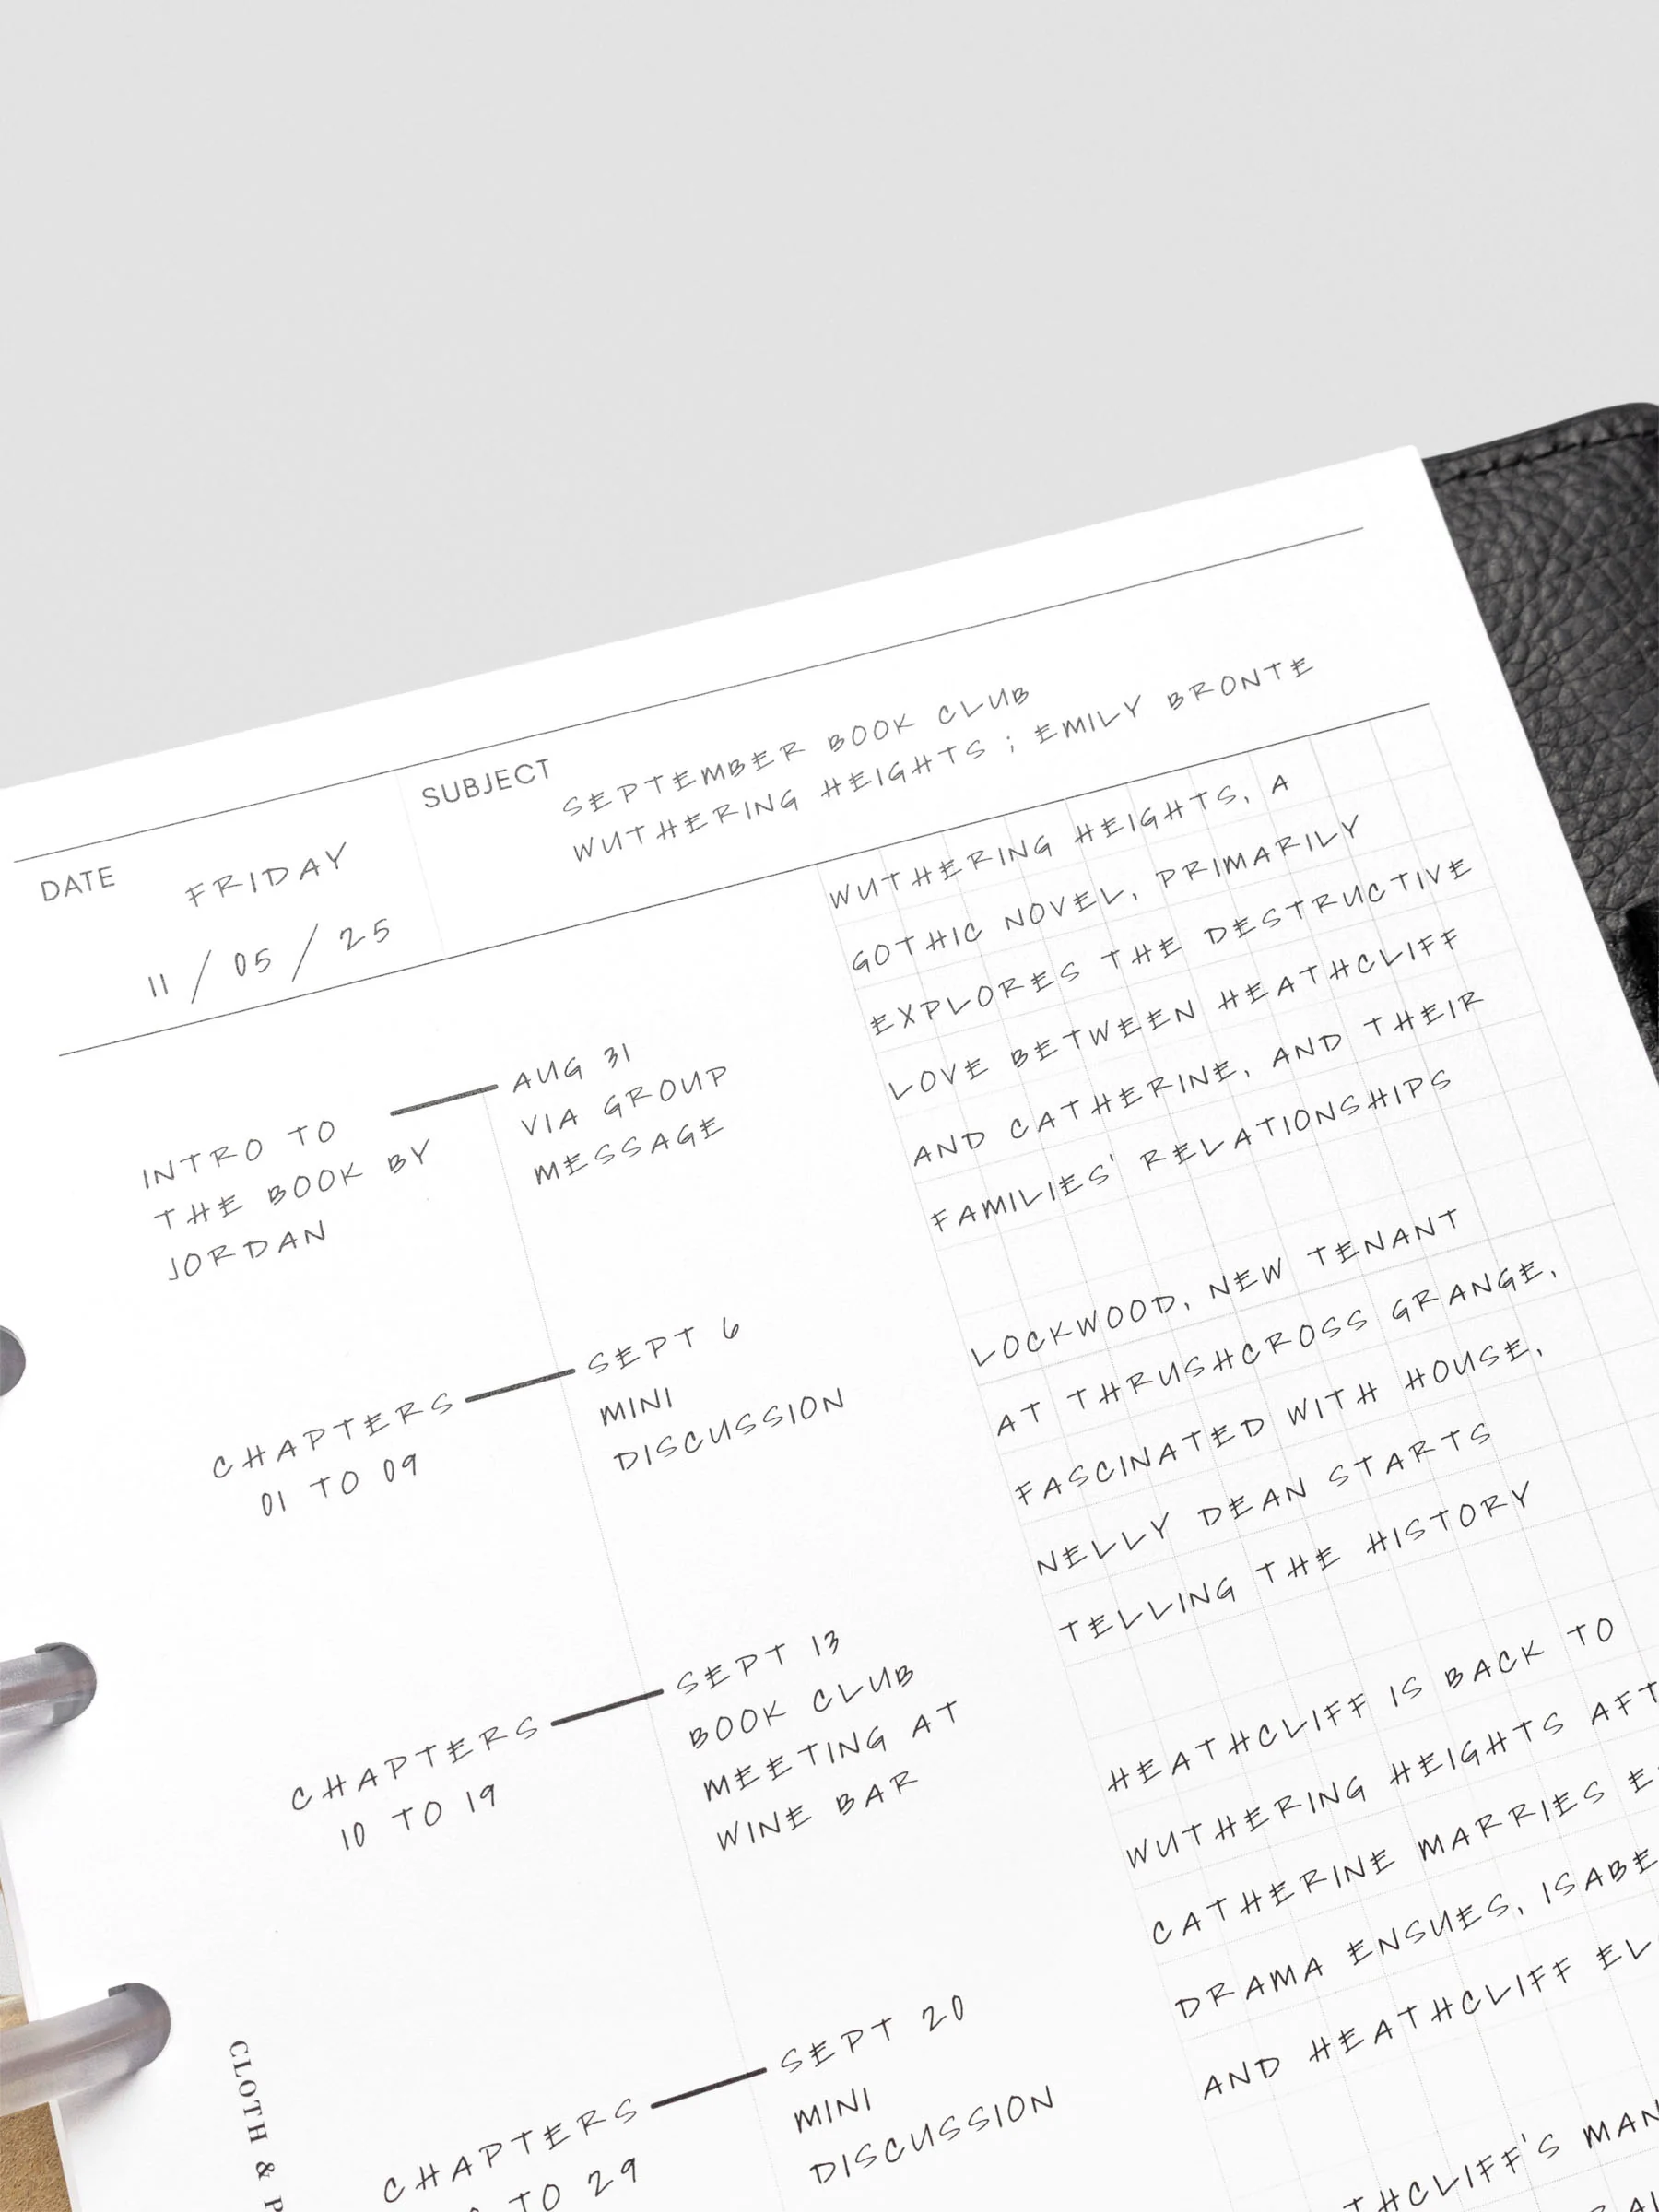 DATE
FRIDAY
11 / 05 / 25
SUBJECT
SEPTEMBER BOOK CLUB
WUTHERING HEIGHTS ; EMILY BRONTE
INTRO TO
THE BOOK BY
JORDAN
AUG 31
VIA GROUP
MESSAGE
CHAPTERS
01 TO 09
SEPT 6
MINI
DISCUSSION
CHAPTERS
10 TO 19
SEPT 13
BOOK CLUB
MEETING AT
WINE BAR
CHAPTERS
TO 29
SEPT 20
MINI
DISCUSSION
WUTHERING HEIGHTS, A
GOTHIC NOVEL, PRIMARILY
EXPLORES THE DESTRUCTIVE
LOVE BETWEEN HEATHCLIFF
AND CATHERINE, AND THEIR
FAMILIES' RELATIONSHIPS
LOCKWOOD, NEW TENANT
AT THRUSHCROSS GRANGE,
FASCINATED WITH HOUSE,
NELLY DEAN STARTS
TELLING THE HISTORY
HEATHCLIFF IS BACK TO
WUTHERING HEIGHTS
CATHERINE MARRIES
DRAMA ENSUES,
AND HEATHCLIFF
CLOTH &